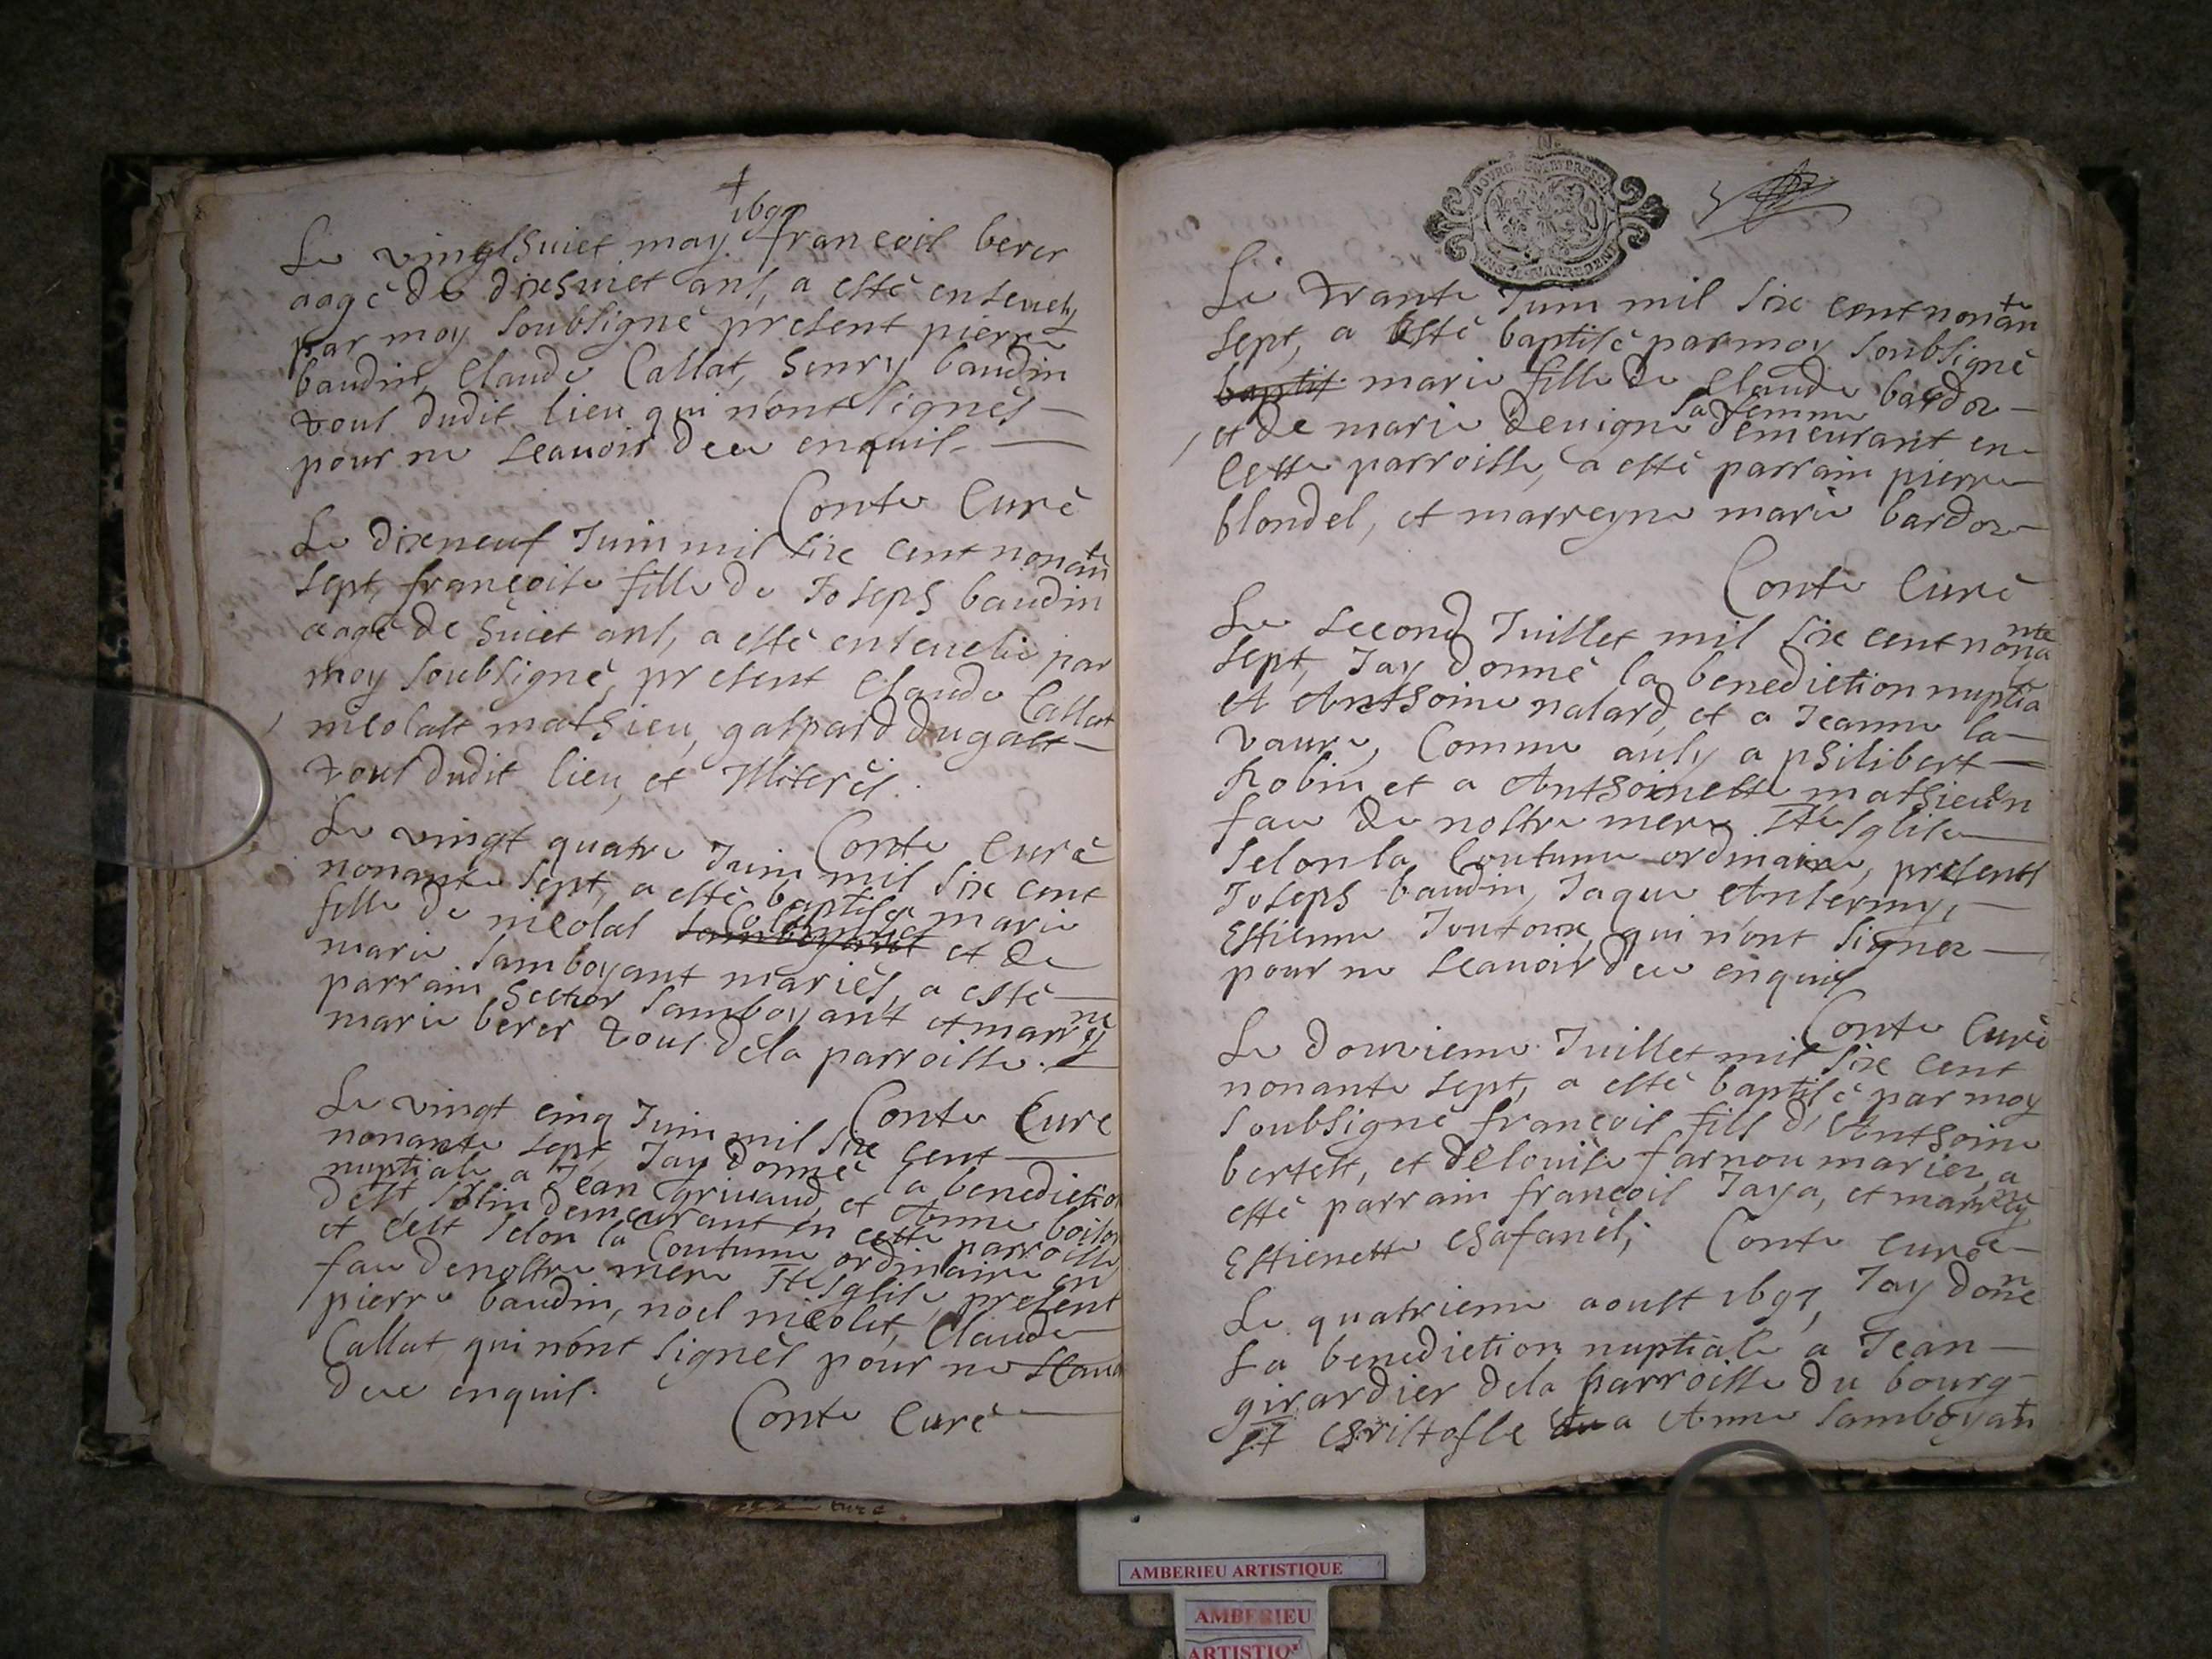 1697
Le vingt huict may francois berer
aagé de dixhuict ans, a esté enseuely
par moy soubsigné present pierre
baudin, Claude Callat, henry baudin
tous dudit lieu qui n'ont signés
pour ne scauoir deu enquis
Conte Curé
Le dixneuf Juin mil six cent nonante
sept, françoise fille de Joseph baudin
aagé de huict ans, a esté enseuelie par
moy soubsigné, present Claude Callat
nicolast mathieu, gaspard dugast
tous dudit lieu, et Illiterés.
Conte Curé
Le vingt quatre Juin mil six cent
nonante sept, a esté baptisée marie
fille de nicolas et de
marie Jamboyant mariés, a esté
parrain hector Jamboyant et marreyne
marie berer tous dela parroisse.
Conte Curé
Le vingt cinq Juin mil six cent
nonante sept, Jay donné la benediction
nuptiale a Jean grivaud, et Anne boison
de St Sorlin demeurant en cette parroisse
et c'est selon la Coutume ordinaire en
face de nostre mere Ste Iglise present
pierre baudin, noel nicolet, Claude
Callat qui n'ont signés pour ne scauoir
deue enquis.
Conte Curé
BOURG EN BRESSE
Le trante Juin mil six cent nonante
sept, a esté baptisé par moy soubsigné
baptis marie fille de Claude bardoz
et de marie deuigne sa femme demeurant en
cette parroisse, a esté parrain pierre
blondel, et marreyne marie bardoz
Conte Curé
Le second Juillet mil six cent nonante
sept, Jay donné la benediction nuptiale
et Anthoine nalard, et a Jeanne la
vaure, Comme ausy a philibert
Robin et a Anthoinette mathieu en
face de nostre mere Ste Iglise
selon la Coutume ordinaire, presents
Joseph baudin, Jaque Ansermy,
Estienne Joutoux, qui n'ont signez
pour ne scauoir deu enquis
Conte Curé
Le douzieme Juillet mil six cent
nonante sept, a esté baptisé par moy
soubsigné francois fils d'Anthoine
bertest, et de louise farnou mariez, a
esté parrain francois Jaya, et marreyne
Estienette Chafanel; Conte Curé
Le quatrieme aoust 1697, Jay donné
La benediction nuptiale a Jean
girardier dela parroisse du bourg
St Christofle a Anne Jamboyant
AMBERIEU ARTISTIQUE
AMBERIEU
ARTISTIQ